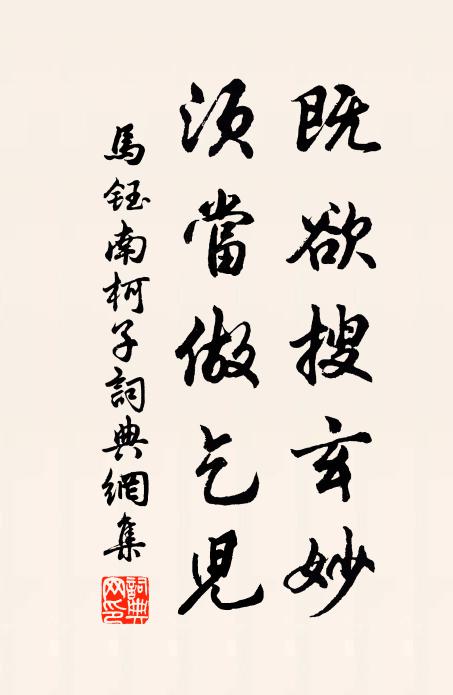 既欲搜玄妙
須當做乞兒
馬鈺南柯子詞典網集
詞典网印